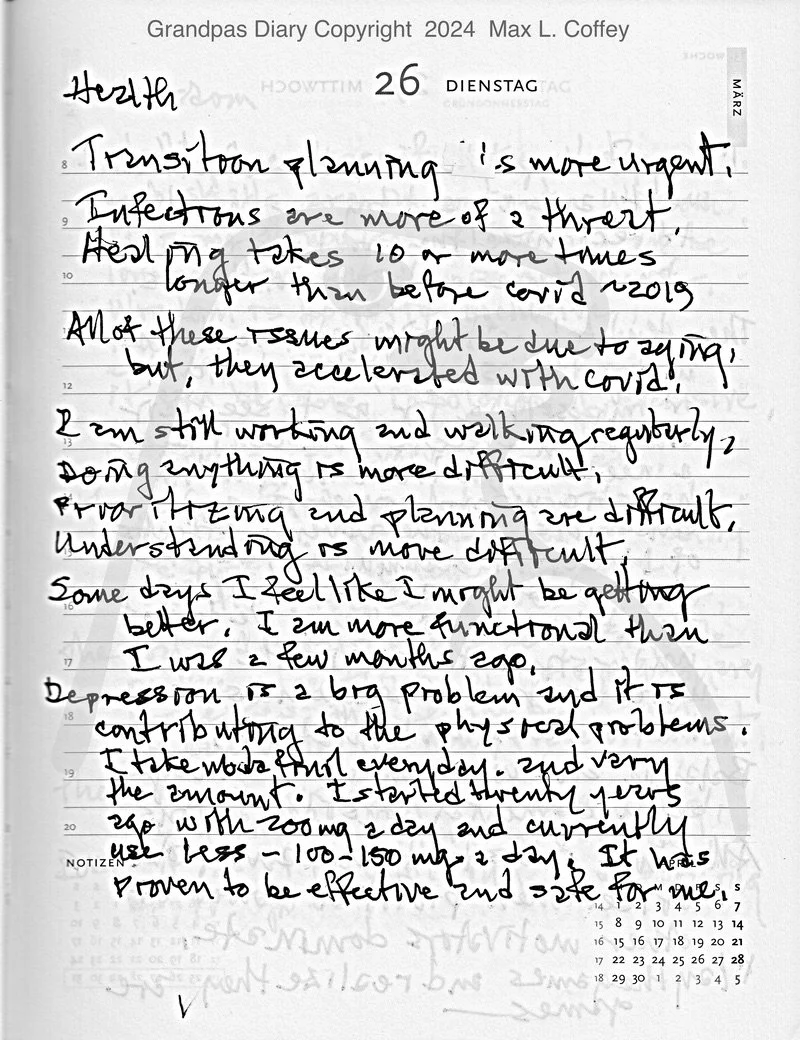 Grandpas Diary Copyright 2024 Max L. Coffey
Health
26 DIENSTAG
MÄRZ
8 Transition planning is more urgent.
9 Infections are more of a threat.
Healing takes 10 or more times
10 longer than before covid ~2019
All of these issues might be due to aging,
12 but, they accelerated with covid.
I am still working and walking regularly,
13
Doing anything is more difficult.
Prioritizing and planning are difficult.
Understanding is more difficult.
Some days I feel like I might be getting
16 better. I am more functional than
17 I was a few months ago.
Depression is a big problem and it is
18 contributing to the physical problems.
I take modafinil everyday. and vary
19 the amount. I started twenty years
20 ago with 200mg a day and currently
use less - 100-150 mg a day. It was
NOTIZEN APRIL
proven to be effective and safe for me.
M D F S S
14 1 2 3 4 5 6 7
15 8 9 10 11 12 13 14
16 15 16 17 18 19 20 21
17 22 23 24 25 26 27 28
18 29 30 1 2 3 4 5